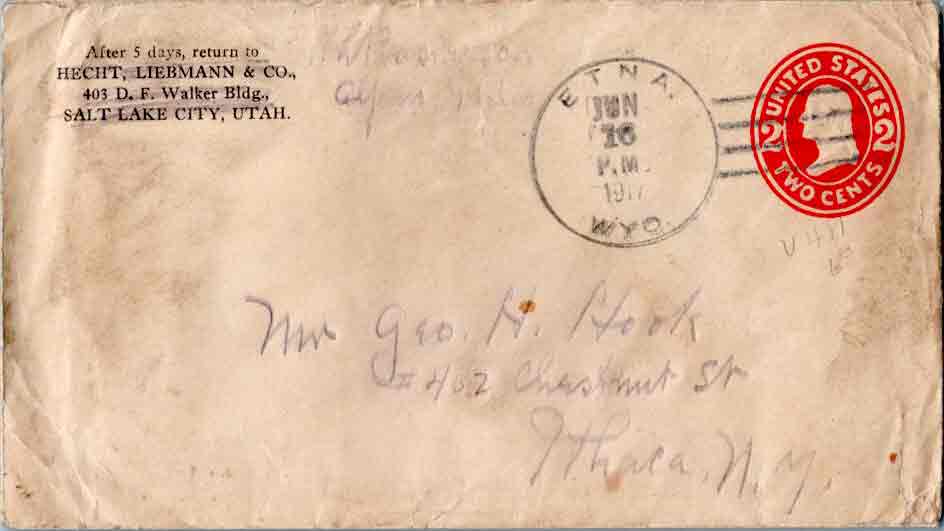 After 5 days, return to
HECHT, LIEBMANN & CO.,
403 D. F. Walker Bldg.,
SALT LAKE CITY, UTAH.
ETNA.
JUN
16
P.M.
1917
WYO.
UNITED STATES
2 2
TWO CENTS
Mr Geo. H. Hook
#402 Chestnut St
Ithaca, N.Y.